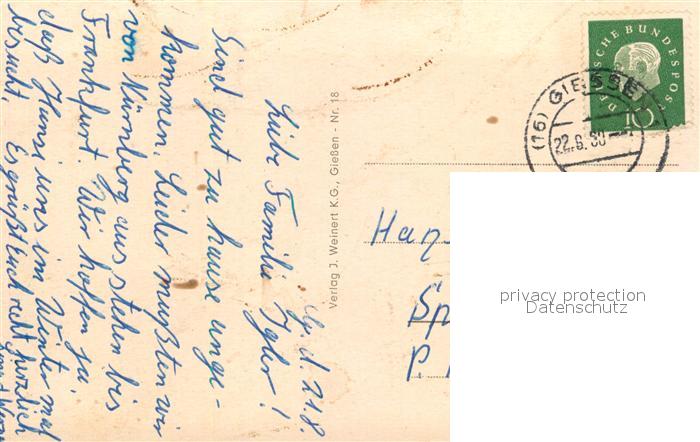 Gi. d. 21.8.
Liebe Familie Igler!
Sind gut zu hause ange-
kommen. Leider mußten wir
von Nürnberg aus stehen bis
Frankfurt. Wir hoffen ja
daß Hans uns im Winter mal
besucht. Es grüßt Euch recht herzlich
Verlag J. Weinert K.G., Gießen - Nr. 18
DEUTSCHE BUNDESPOST
10
(16) GIESSE
22.8.60
Han
Sp
P
privacy protection
Datenschutz